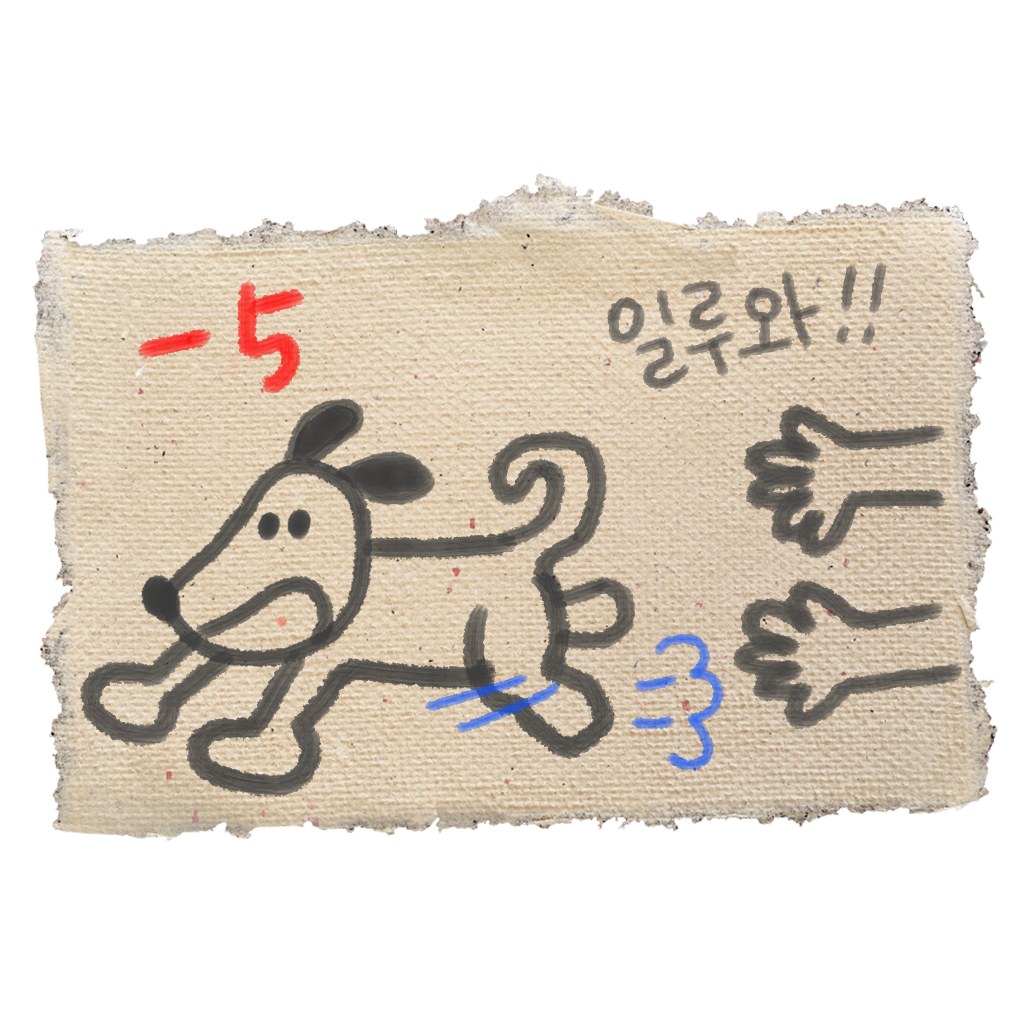 -5
일루와!!